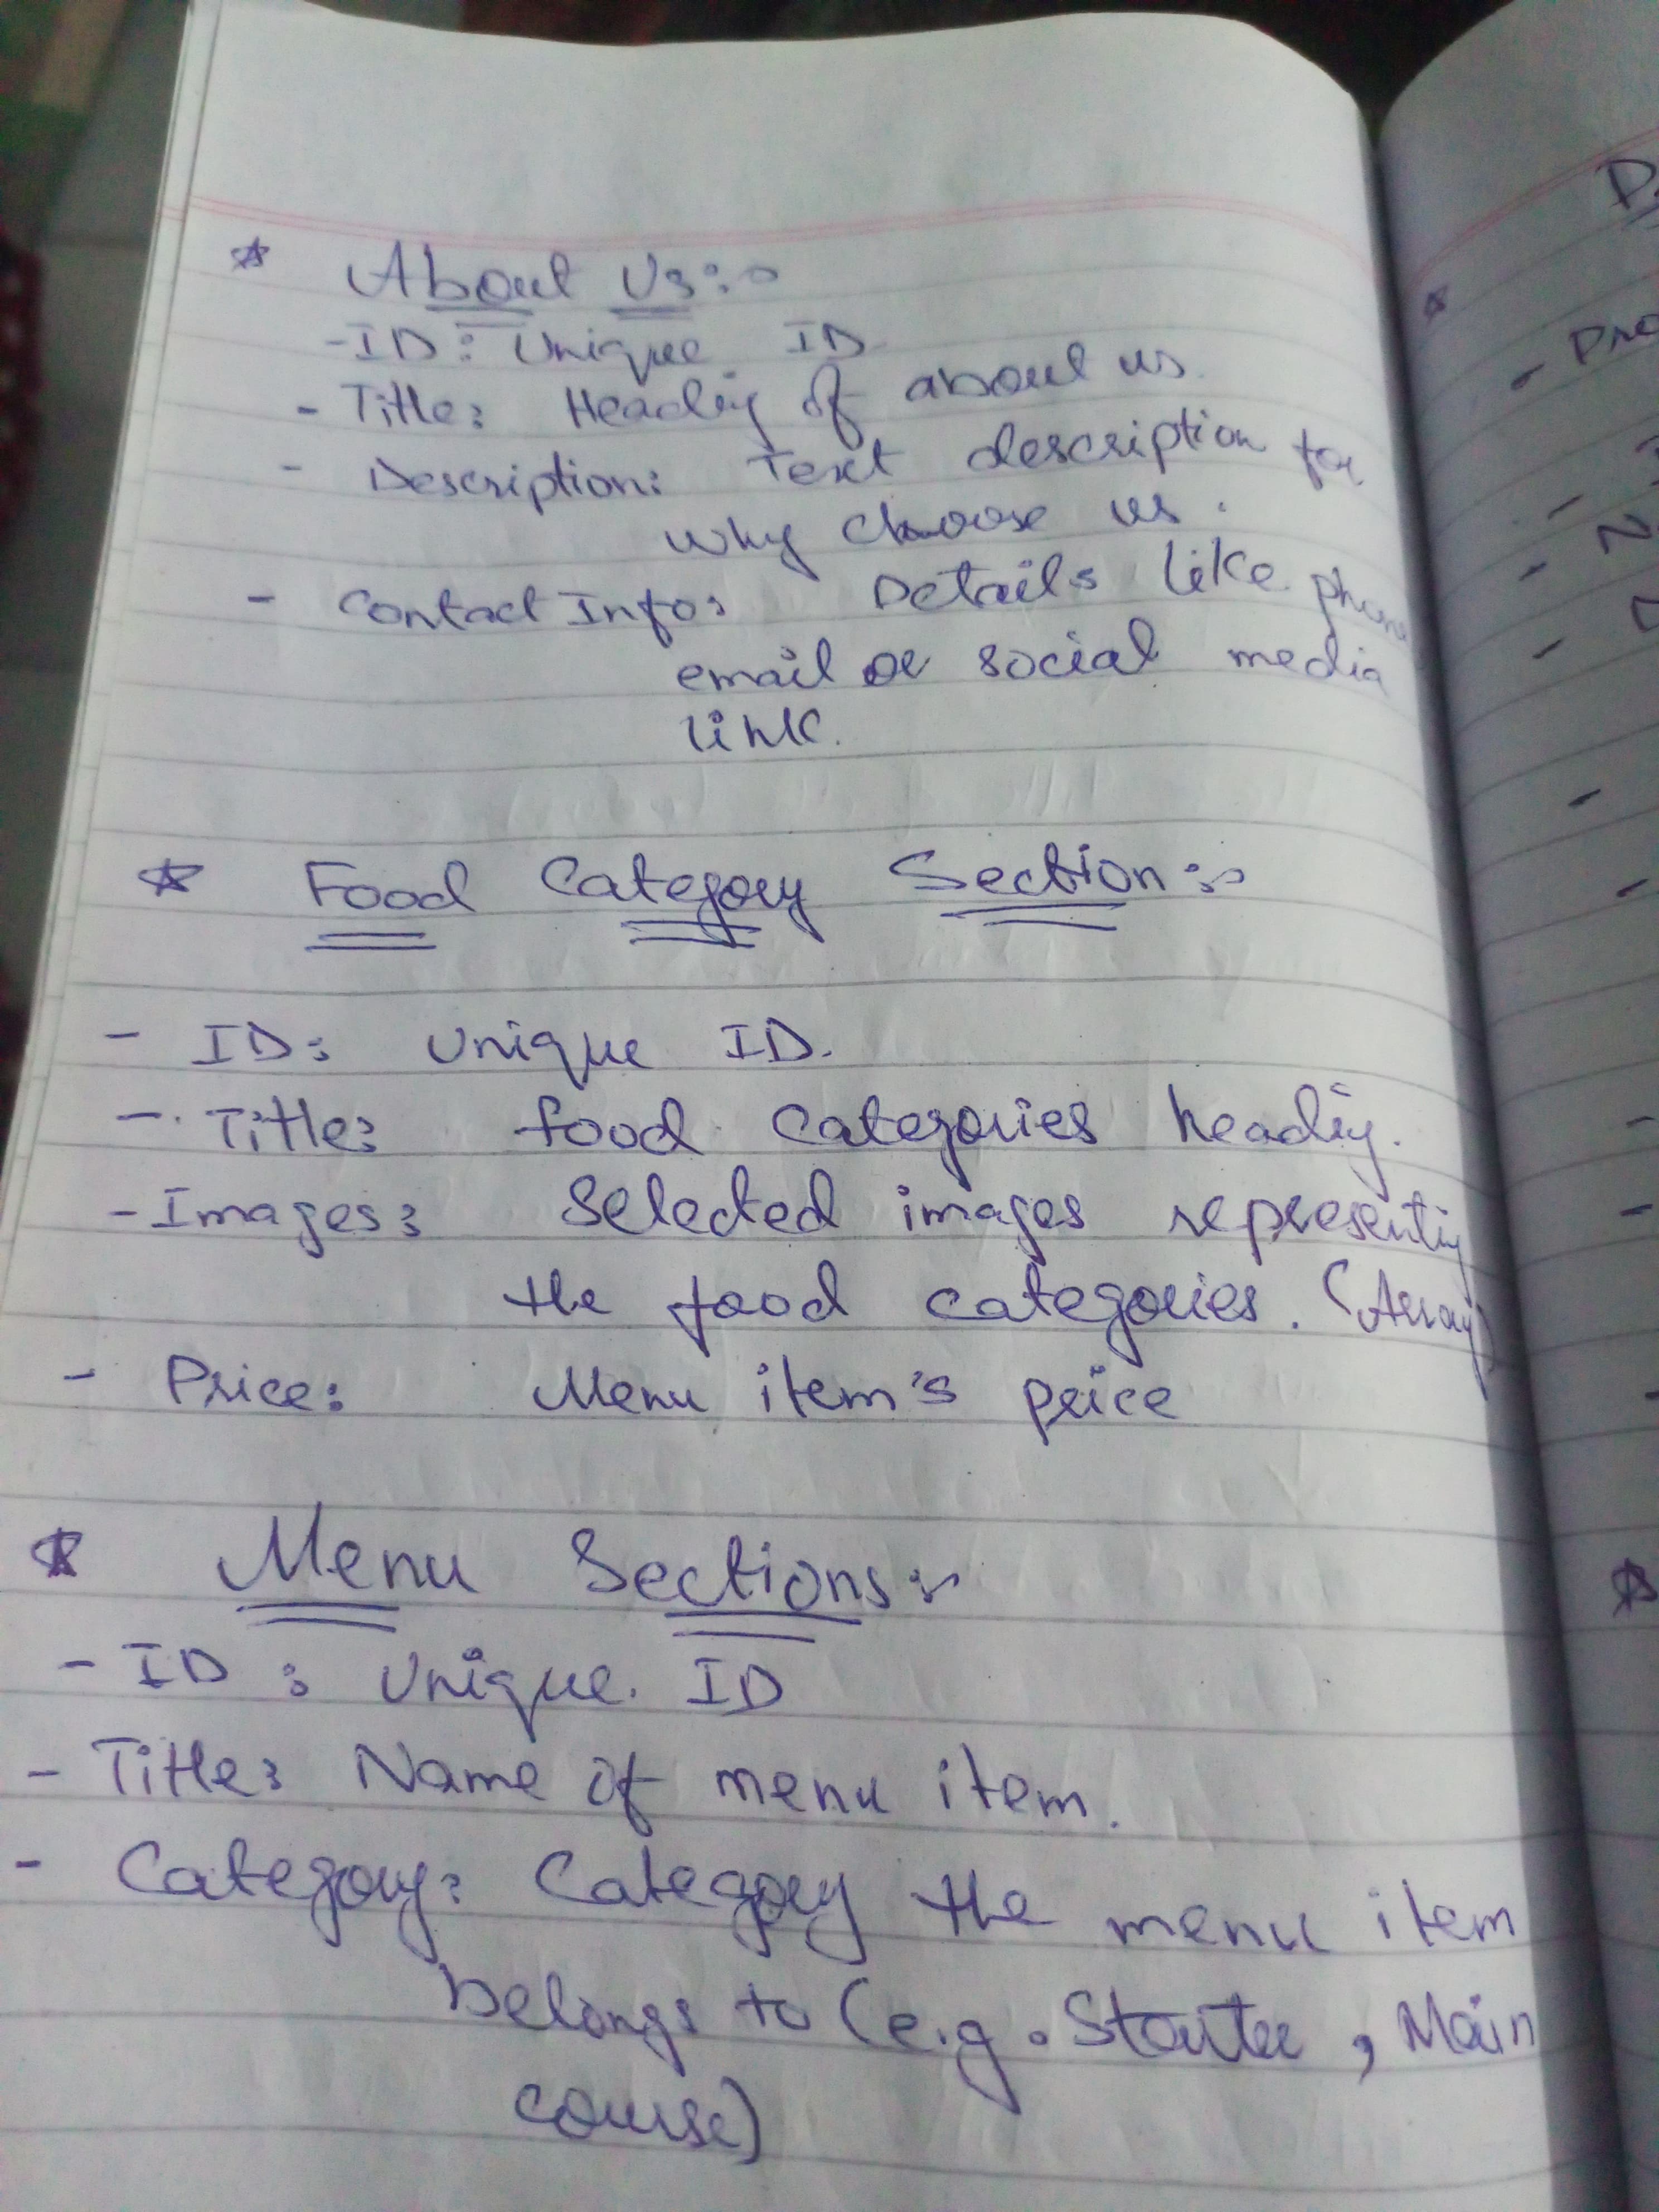 * About Us:-
- ID: Unique ID
- Title: Heading of about us.
- Description: Text description for
why choose us.
- Contact Info: Details like phone
email or social media
link.
* Food Category Section:-
- ID: Unique ID.
- Title: food categories heading.
- Images: Selected images representing
the food categories. (Array)
- Price: Menu item's price
* Menu Sections:-
- ID : Unique. ID
- Title: Name of menu item.
- Category: Category the menu item
belongs to (e.g. Starter, Main
course)